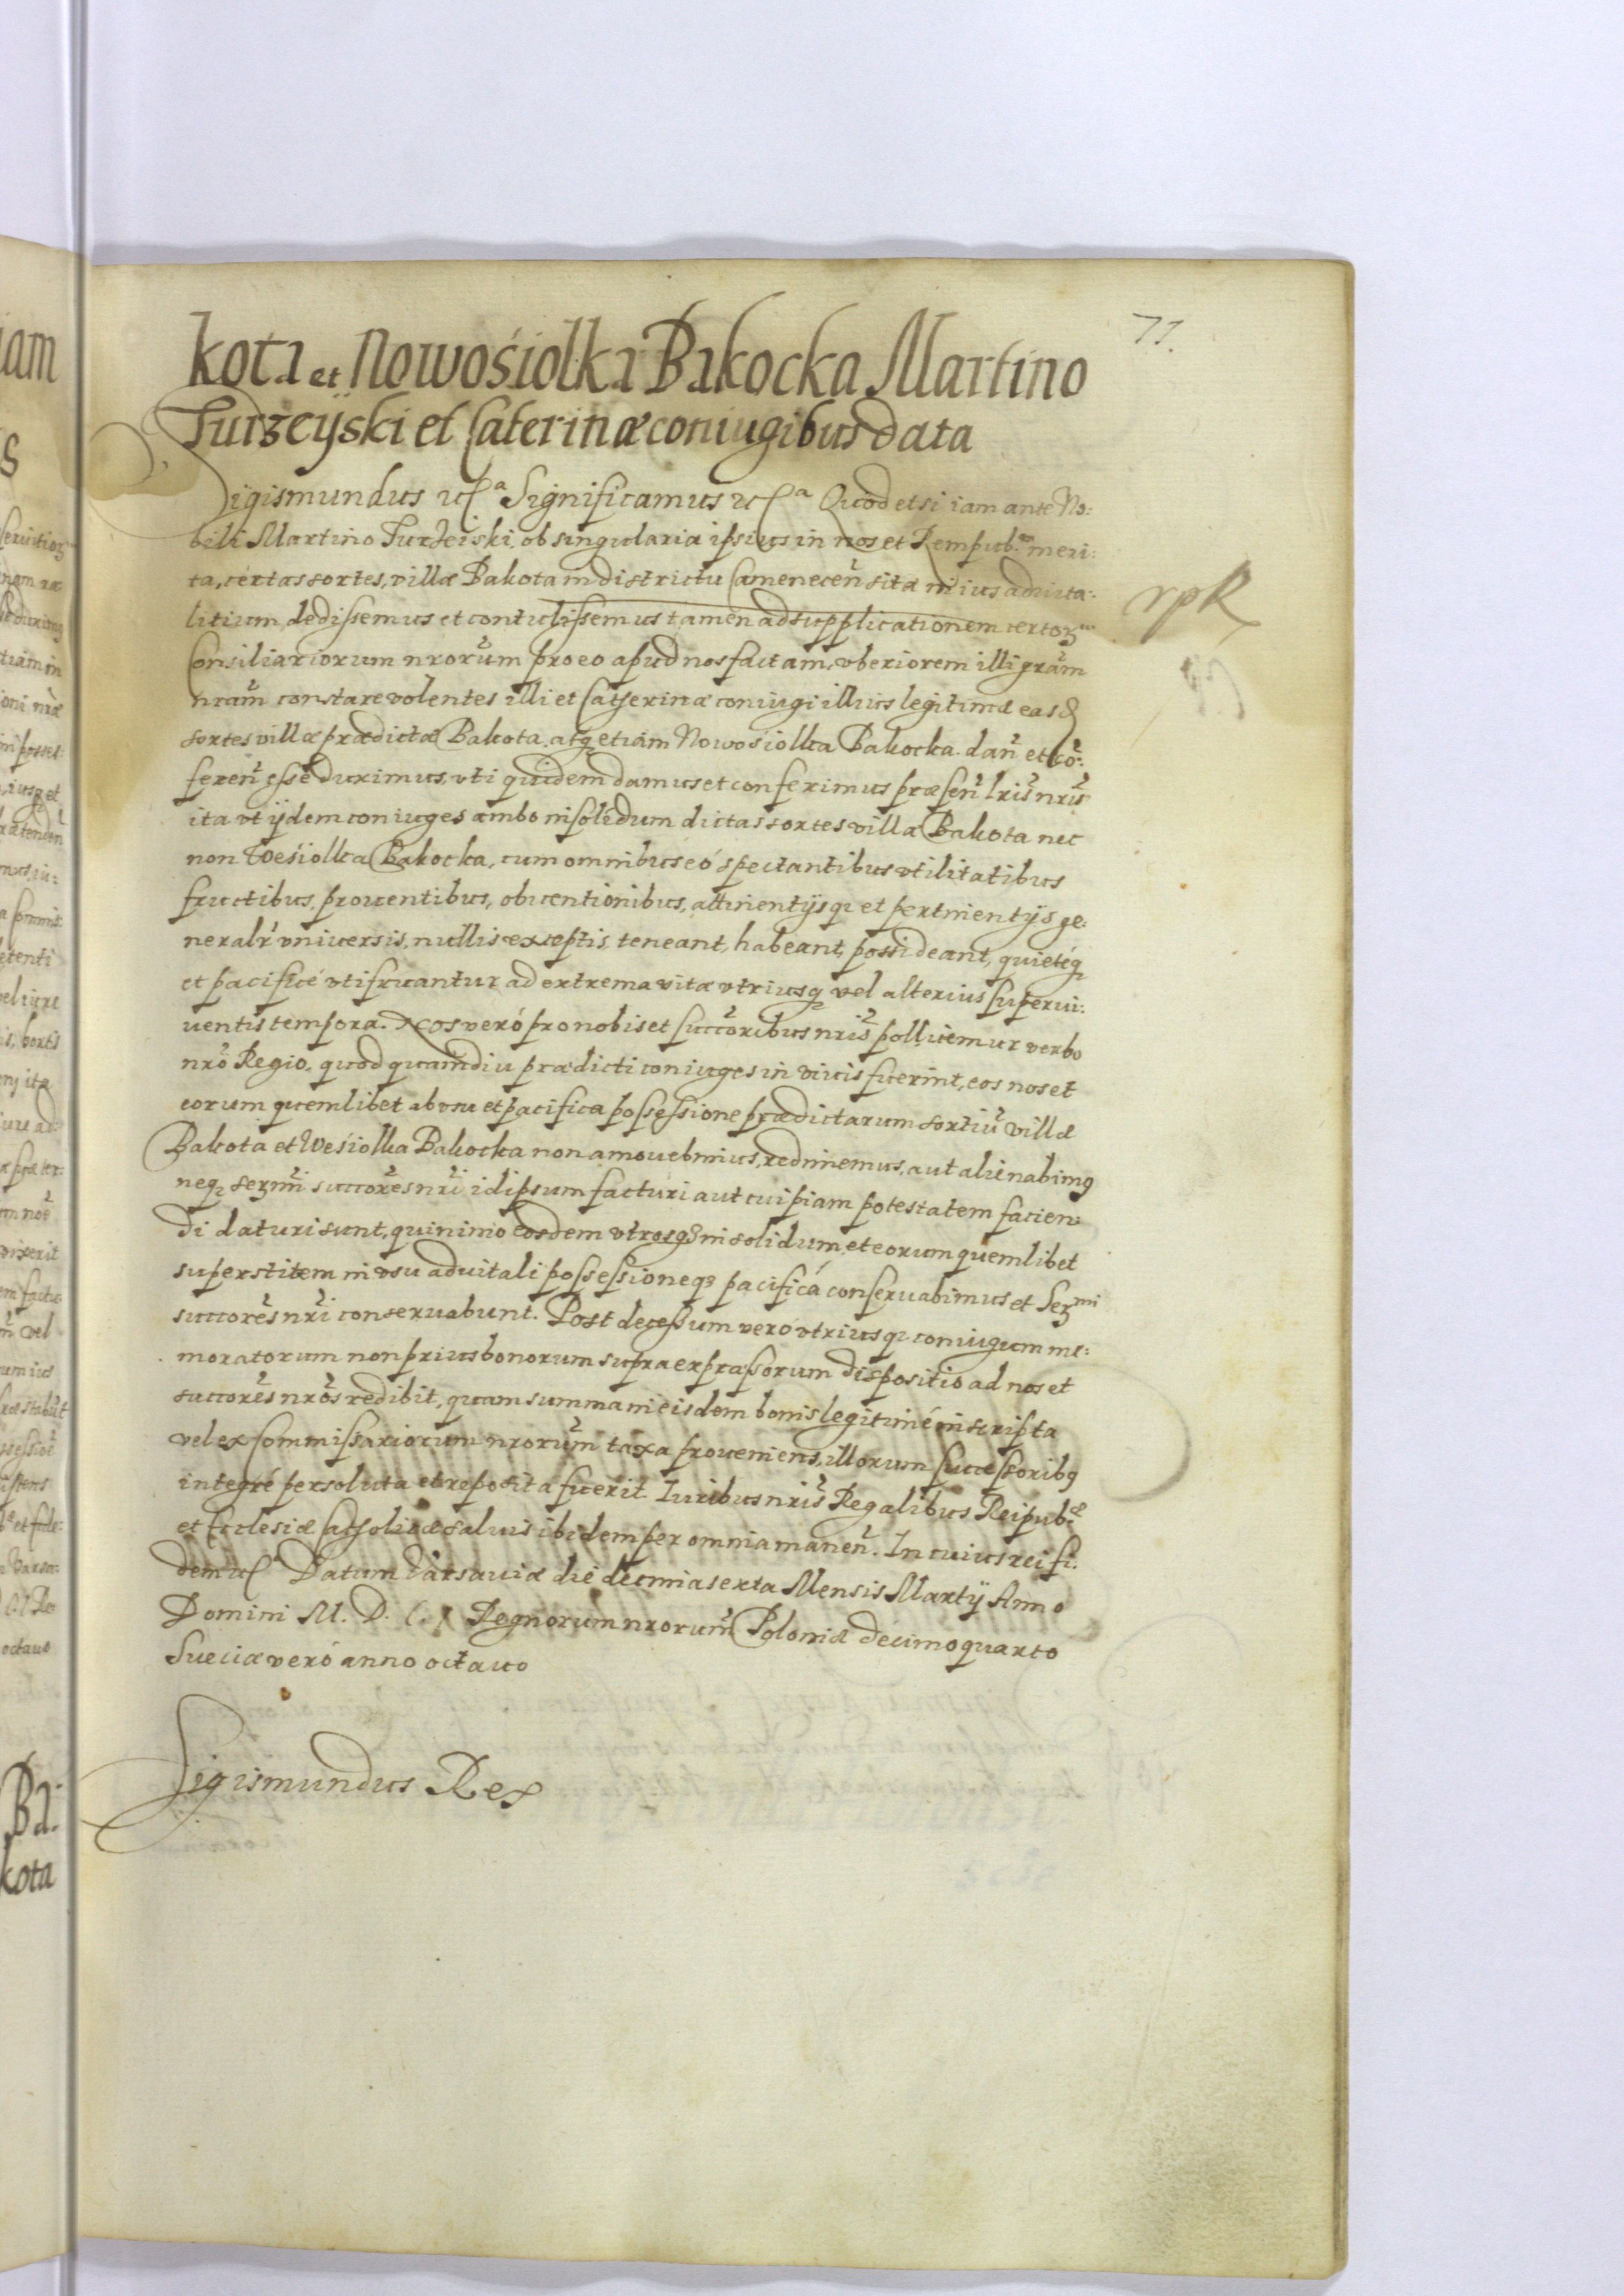 71.
kota et Nowośiolka Bakocka Martino
Turzeÿski et Caterinæ coniugibus data
Sigismundus etc.ª Significamus etc.ª Quod etsi iam ante No:
bili Martino Turzeiski, ob singularia ipsius in nos et Rempub.ᵐ meri:
ta, certas sortes, villæ Bakota in districtu Camenecen̄ sitæ in ius aduita:
litium, dedissemus et contulissemus tamen ad supplicationem certoꝝ
Consiliariorum nrorum̄ pro eo apud nos factam, vberiorem illi gram̄
nram̄ constare volentes illi et Catherinæ coniugi illius legitimæ easd
sortes villæ prædictæ Bakota, atq; etiam Nowosiolka Bakocka. dan̄ et co̅:
feren̄ esse duximus, vti quidem damus et conferimus præsen̄ lris̄ nris̄
ita vt ijdem coniuges ambo in solidum dictas sortes villæ Bakota nec
non Wesiolka Bakocka, cum omnibus eó spectantibus vtilitatibus
fructibus, prouentibus, obuentionibus, attinentÿsq; et pertinentÿs ge:
neralr̄ vniuersis, nullis exceptis, teneant, habeant, possideant, quietéq;
et pacificé vtifruantur ad extrema vitæ vtriusq; vel alterius superui:
uentis tempora. Nos veró pro nobis et succōribus nris̄ pollicemur verbo
nrō Regio, quod quamdiu prædicti coniuges in viuis fuerint, eos nos et
eorum quemlibet ab vsu et pacifica possessione prædictarum sortiū villæ
Bakota et Wesiolka Bakocka non amouebimus, redimemus, aut alienabimꝯ
neq; serm̄i succorēs nrī id ipsum facturi aut cuipiam potestatem facien:
di daturi sunt, quinimo eosdem vtrosq; in solidum, et eorum quemlibet
superstitem in vsu aduitali possessioneq; pacificá conseruabimus et Serᵐⁱ
succorēs nrī conseruabunt. Post decessum veró vtriusq; coniugum me:
moratorum non prius bonorum supra expræssorum dispositio ad nos et
succorēs nrōs redibit, quam summa in eisdem bonis legitimé inscripta
vel ex Commissariorum nrorum̄ taxa proueniens, illorum successoribꝯ
integré persoluta et reposita fuerit. Iuribus nris̄ Regalibus Reipub.æ
et Ecclesiæ Catholicæ saluis ibidem per omnia manen̄. In cuius rei fi:
dem etc. Datum Varsauiæ die decima sexta Mensis Martÿ Anno
Domini M. D. C. I Regnorum nrorum̄ Poloniæ decimo quarto
Sueciæ veró anno octauo
Sigismundus Rex